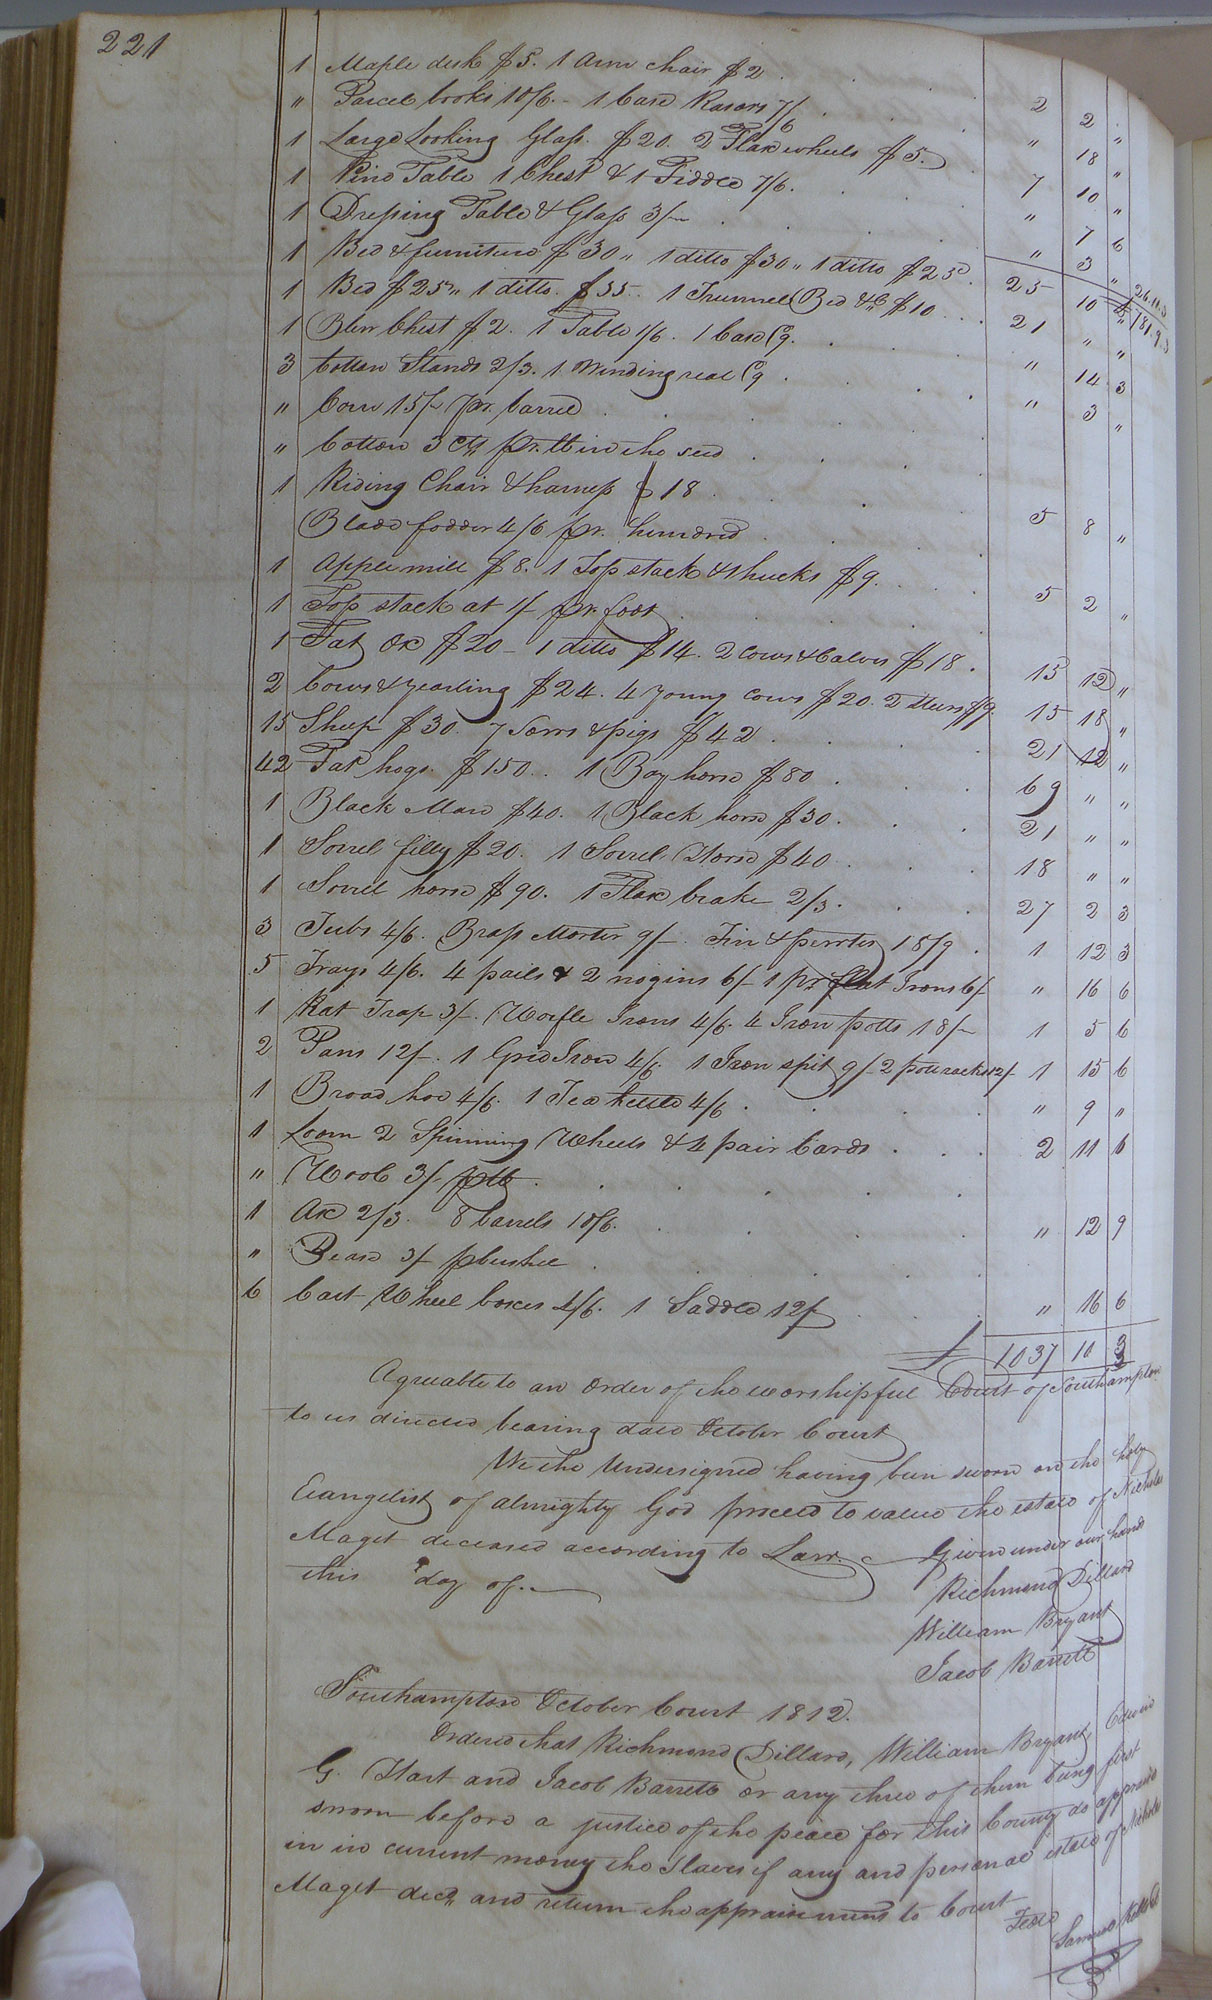 221
1 Maple desk $5. 1 Arm chair $2 . . . 2 2 "
" Parcel books 10/6. - 1 Case Rasors 7/6 . . " 18 "
1 Large Looking Glass. $20. 2 Flax wheels $5. 7 10 "
1 Pine Table 1 Chest & 1 Fiddle 7/6. . . " 7 6
1 Dressing Table & Glass 3/- . . " 3 "
1 Bed & furniture $30 " 1 ditto $30 " 1 ditto $25. 25 10 "
1 Bed $25 " 1 ditto. $35. 1 Trunnel Bed &c $10 . . . 21 " "
1 Blew Chest $2. 1 Table 1/6. 1 Case 9. . . " 14 3
3 Cotton Stands 2/3. 1 Winding real 9 . . " 3 "
" Corn 15/- pr. barrel . . .
" Cotton 3 Cts pr. lb in the seed . . .
1 Riding Chair & harness $18 . . . 5 8 "
Blade fodder 4/6 pr. hundred . . .
1 Apple mill $8. 1 Top stack & shucks $9. . . 5 2 "
1 Top stack at 1/- pr. foot . . .
1 Fat Ox $20 - 1 ditto $14. 2 Cows & Calves $18 . 15 12 "
2 Cows & yearling $24. 4 young Cows $20. 2 Steers $9. 15 18 "
15 Sheep $30. 7 Sows & pigs $42 . . . 21 12 "
42 Fat hogs. $150. . 1 Bay horse $80 . . 69 " "
1 Black Mare $40. 1 Black horse $30 . . . 21 " "
1 Sorrel filly $20. 1 Sorrel Horse $40 . . . 18 " "
1 Sorrel horse $90. 1 Flax brake 2/3 . . . 27 2 3
3 Tubs 4/6. Brass Morter 9/-. Tin & pewter 18/9 . 1 12 3
5 Trays 4/6. 4 pails & 2 nogins 6/- 1 pr flat Irons 6/- " 16 6
1 Rat Trap 3/-. Woifle Irons 4/6. 4 Iron potts 18/- 1 5 6
2 Pans 12/-. 1 Grid Iron 4/6. 1 Iron spit 9/- 2 pott racks 12/- 1 15 6
1 Broad hoe 4/6. 1 Tea kettle 4/6 . . . " 9 "
1 Loom 2 Spinning Wheels & 4 pair Cards . . . 2 11 6
" Wool 3/- p lb . . .
1 Ax 2/3. 8 barrels 10/6. . . " 12 9
" Peas 3/- p bushel . . .
6 Cart Wheel boxes 4/6. 1 Saddle 12/- . . " 16 6
£ 1037 10 3
Agreable to an Order of the worshipful Court of Southampton
to us directed bearing date October Court
We the Undersigned having been sworn on the holy
Evangelist of almighty God proceed to value the estate of Nicholas
Maget deceased according to Law. Given under our hand
this day of.
Richmond Dillard
William Bryant
Jacob Barrett
Southampton October Court 1812.
Ordered that Richmond Dillard, William Bryant, Edwin
G. Hart and Jacob Barrett or any three of them being first
sworn before a justice of the peace for this County do appraise
in in current money the Slaves if any and personal estate of Nicholas
Maget decd, and return the appraisement to Court
Teste
Samuel Kello